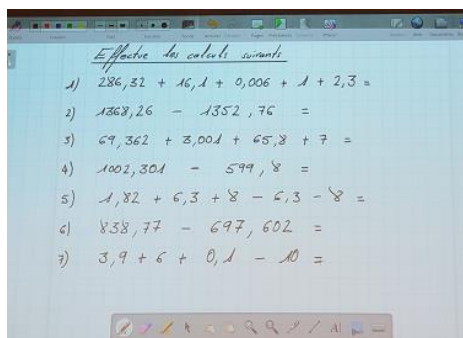 Effectue les calculs suivants
1) 286,32 + 16,1 + 0,006 + 1 + 2,3 =
2) 1368,26 - 1352,76 =
3) 69,362 + 3,001 + 65,8 + 7 =
4) 1002,301 - 599,8 =
5) 1,82 + 6,3 + 8 - 6,3 - 8 =
6) 838,77 - 697,602 =
7) 3,9 + 6 + 0,1 - 10 =